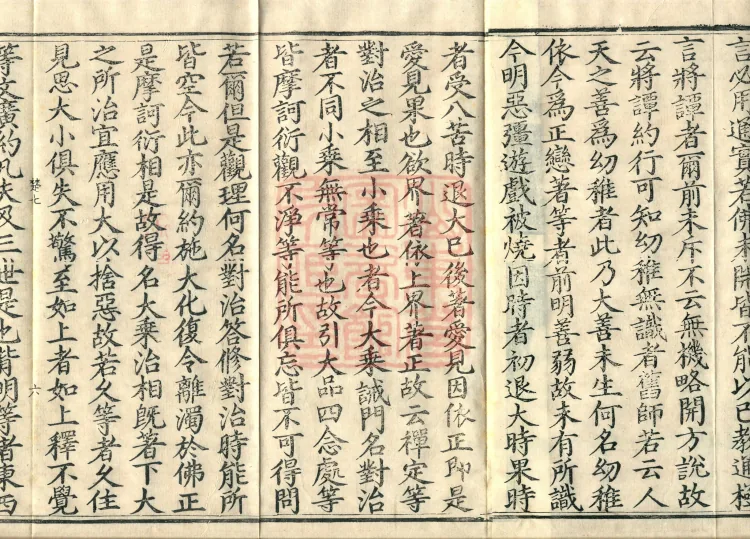 言必用通實若佛未開皆不能以己教通極
言將譚者爾前未斥不云無機略開方說故
云將譚約行可知幼稚無識者舊師若云人
天之善為幼稚者此乃大善未生何名幼稚
依今為正戀著等者前明善弱故未有所識
今明惡彊遊戲被燒因時者初退大時果時
者受八苦時退大已後著愛見因依正即是
愛見果也欲界著依上界著正故云禪定等
對治之相至小乘也者今大乘誡門名對治
者不同小乘無常等也故引大品四念處等
皆摩訶衍觀不淨等能所俱忘皆不可得問
若爾但是觀理何名對治答修對治時能所
皆空今此亦爾約施大化復令離濁於佛正
是摩訶衍相是故得名大乘治相既著下大
之所治宜應用大以捨惡故若久等者久住
見思大小俱失不驚至如上者如上釋不覺
等文廣約凡夫及三世是也皆明等者東西